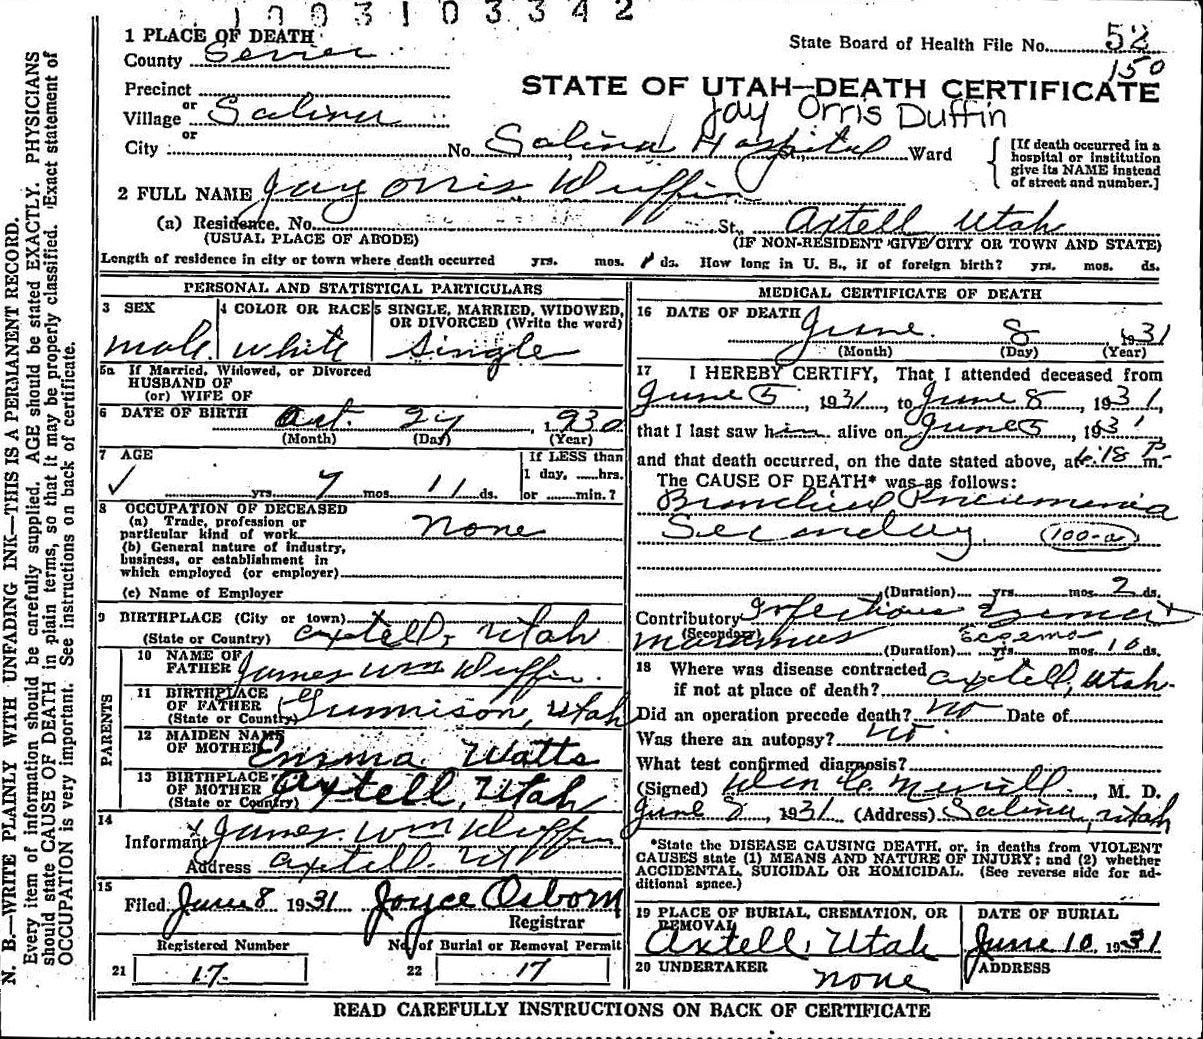 1003103342
1 PLACE OF DEATH
State Board of Health File No. 52
County Sevier
150
Precinct
STATE OF UTAH—DEATH CERTIFICATE
or
Village Salina
Jay Orris Duffin
or
City No. Salina Hospital St., Ward
[If death occurred in a
hospital or institution
give its NAME instead
of street and number.]
2 FULL NAME Jay Orris Duffin
(a) Residence. No. St., Axtell Utah
(USUAL PLACE OF ABODE) (IF NON-RESIDENT GIVE CITY OR TOWN AND STATE)
Length of residence in city or town where death occurred yrs. mos. 1 ds. How long in U. S., if of foreign birth? yrs. mos. ds.
PERSONAL AND STATISTICAL PARTICULARS
3 SEX 4 COLOR OR RACE 5 SINGLE, MARRIED, WIDOWED,
OR DIVORCED (Write the word)
male white single
5a If Married, Widowed, or Divorced
HUSBAND OF
(or) WIFE OF
6 DATE OF BIRTH Oct. 27, 1930
(Month) (Day) (Year)
7 AGE If LESS than
1 day, hrs.
✓ yrs. 7 mos. 11 ds. or min.?
8 OCCUPATION OF DECEASED
(a) Trade, profession or
particular kind of work none
(b) General nature of industry,
business, or establishment in
which employed (or employer)
(c) Name of Employer
9 BIRTHPLACE (City or town)
(State or Country) Axtell, Utah
PARENTS
10 NAME OF
FATHER James Wm Duffin.
11 BIRTHPLACE
OF FATHER
(State or Country) Gunnison, Utah
12 MAIDEN NAME
OF MOTHER Emma Watts
13 BIRTHPLACE
OF MOTHER
(State or Country) Axtell, Utah
14
Informant x James Wm Duffin
Address Axtell. Ut
15
Filed June 8 1931 Joyce Osborn
Registrar
Registered Number No. of Burial or Removal Permit
21 17. 22 17
MEDICAL CERTIFICATE OF DEATH
16 DATE OF DEATH
June 8 1931
(Month) (Day) (Year)
17 I HEREBY CERTIFY, That I attended deceased from
June 5, 1931, to June 8, 1931,
that I last saw him alive on June 5, 1931
and that death occurred, on the date stated above, at 6:18 P. m.
The CAUSE OF DEATH* was as follows:
Bronchial Pneumonia
Secondary (100-a)
(Duration) yrs. mos. 2 ds.
Contributory Infectious Eczema +
(Secondary) marasmus Eczema
(Duration) yrs. mos. 10 ds.
18 Where was disease contracted
if not at place of death? Axtell, Utah.
Did an operation precede death? No Date of
Was there an autopsy? No.
What test confirmed diagnosis?
(Signed) Merrill, M. D.
June 8, 1931 (Address) Salina, Utah
*State the DISEASE CAUSING DEATH, or, in deaths from VIOLENT
CAUSES state (1) MEANS AND NATURE OF INJURY; and (2) whether
ACCIDENTAL, SUICIDAL OR HOMICIDAL. (See reverse side for ad-
ditional space.)
19 PLACE OF BURIAL, CREMATION, OR
REMOVAL
DATE OF BURIAL
Axtell, Utah June 10, 1931
20 UNDERTAKER ADDRESS
none
READ CAREFULLY INSTRUCTIONS ON BACK OF CERTIFICATE
N. B.—WRITE PLAINLY WITH UNFADING INK—THIS IS A PERMANENT RECORD.
Every item of information should be carefully supplied. AGE should be stated EXACTLY. PHYSICIANS
should state CAUSE OF DEATH in plain terms, so that it may be properly classified. Exact statement of
OCCUPATION is very important. See instructions on back of certificate.